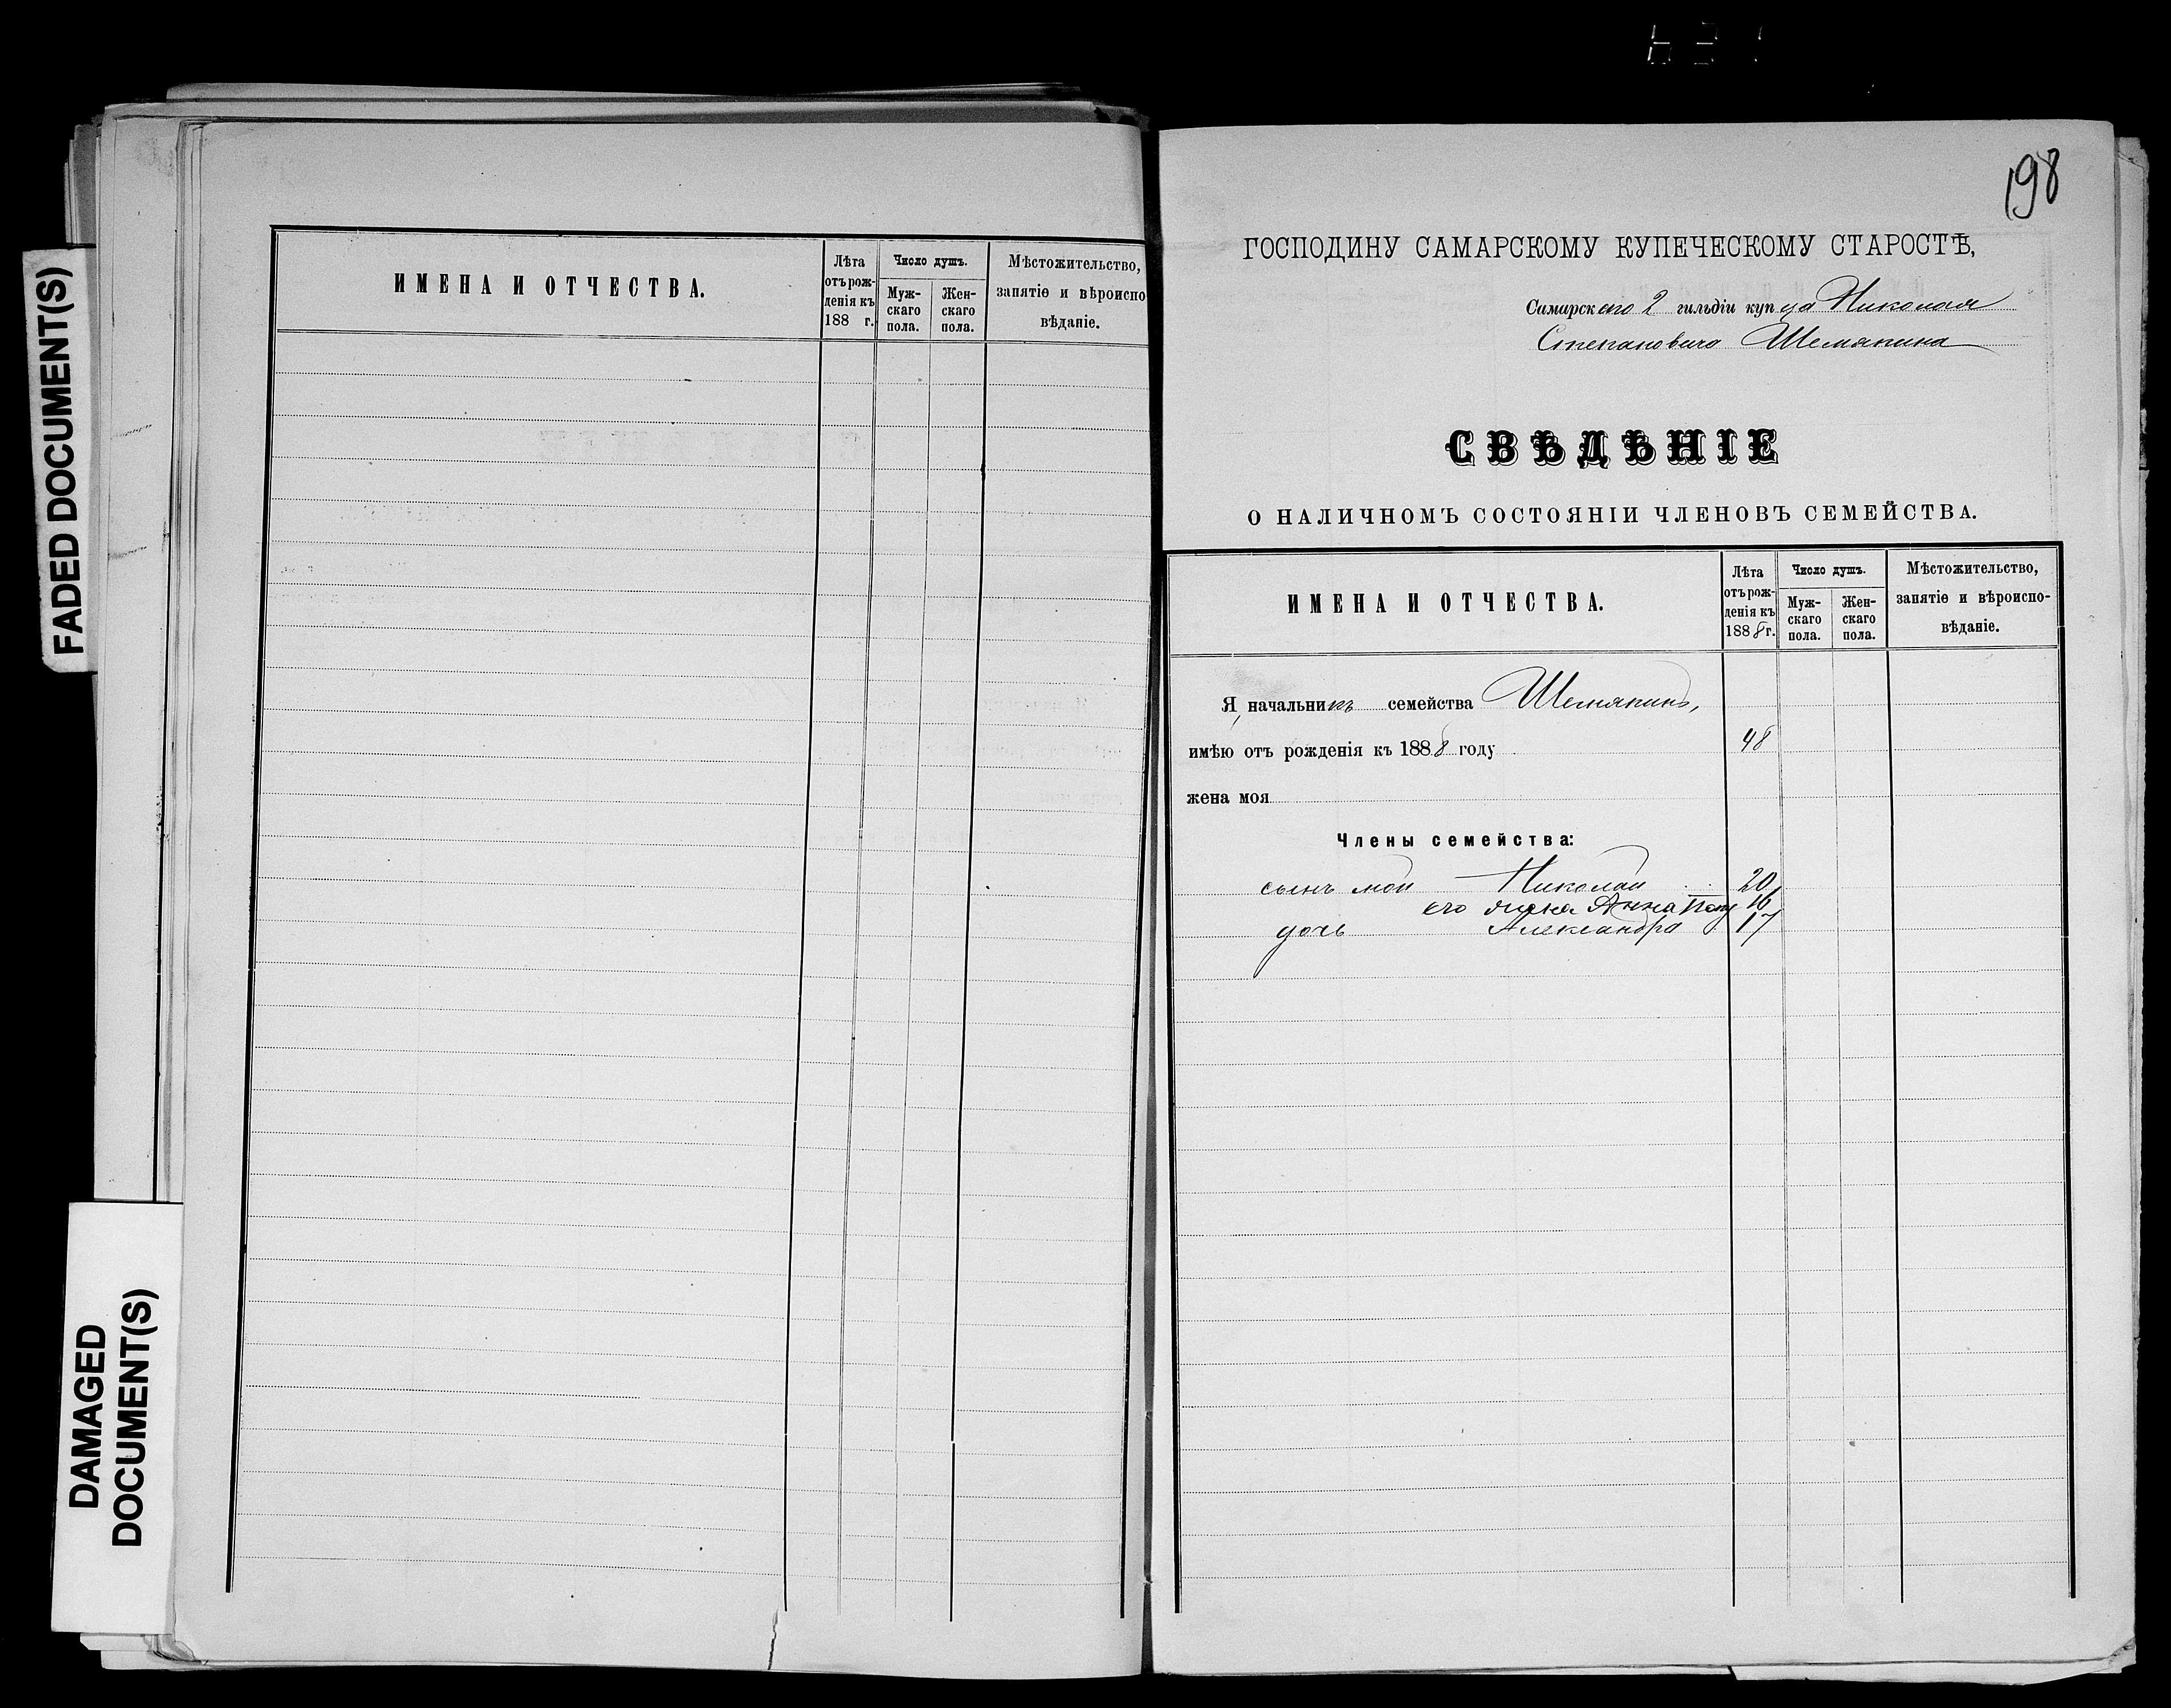 FADED DOCUMENT(S)
DAMAGED
DOCUMENT(S)
ИМЕНА И ОТЧЕСТВА.
Лѣта
отъ рож-
денія къ
188 г.
Число душъ.
Муж-
скаго
пола.
Жен-
скаго
пола.
Мѣстожительство,
занятіе и вѣроиспо
вѣданіе.
198
ГОСПОДИНУ САМАРСКОМУ КУПЕЧЕСКОМУ СТАРОСТѢ,
Самарского 2 гильдіи купца Николая
Степановича Шемякина
СВѢДѢНІЕ
О НАЛИЧНОМЪ СОСТОЯНІИ ЧЛЕНОВЪ СЕМЕЙСТВА.
ИМЕНА И ОТЧЕСТВА.
Лѣта
отъ рож-
денія къ
1888 г.
Число душъ.
Муж-
скаго
пола.
Жен-
скаго
пола.
Мѣстожительство,
занятіе и вѣроиспо-
вѣданіе.
Я, начальникъ семейства Шемякинъ,
имѣю отъ рожденія къ 1888 году 48
жена моя
Члены семейства:
сынъ мой Николай 20
его жена Анна 16
дочь Александра 17